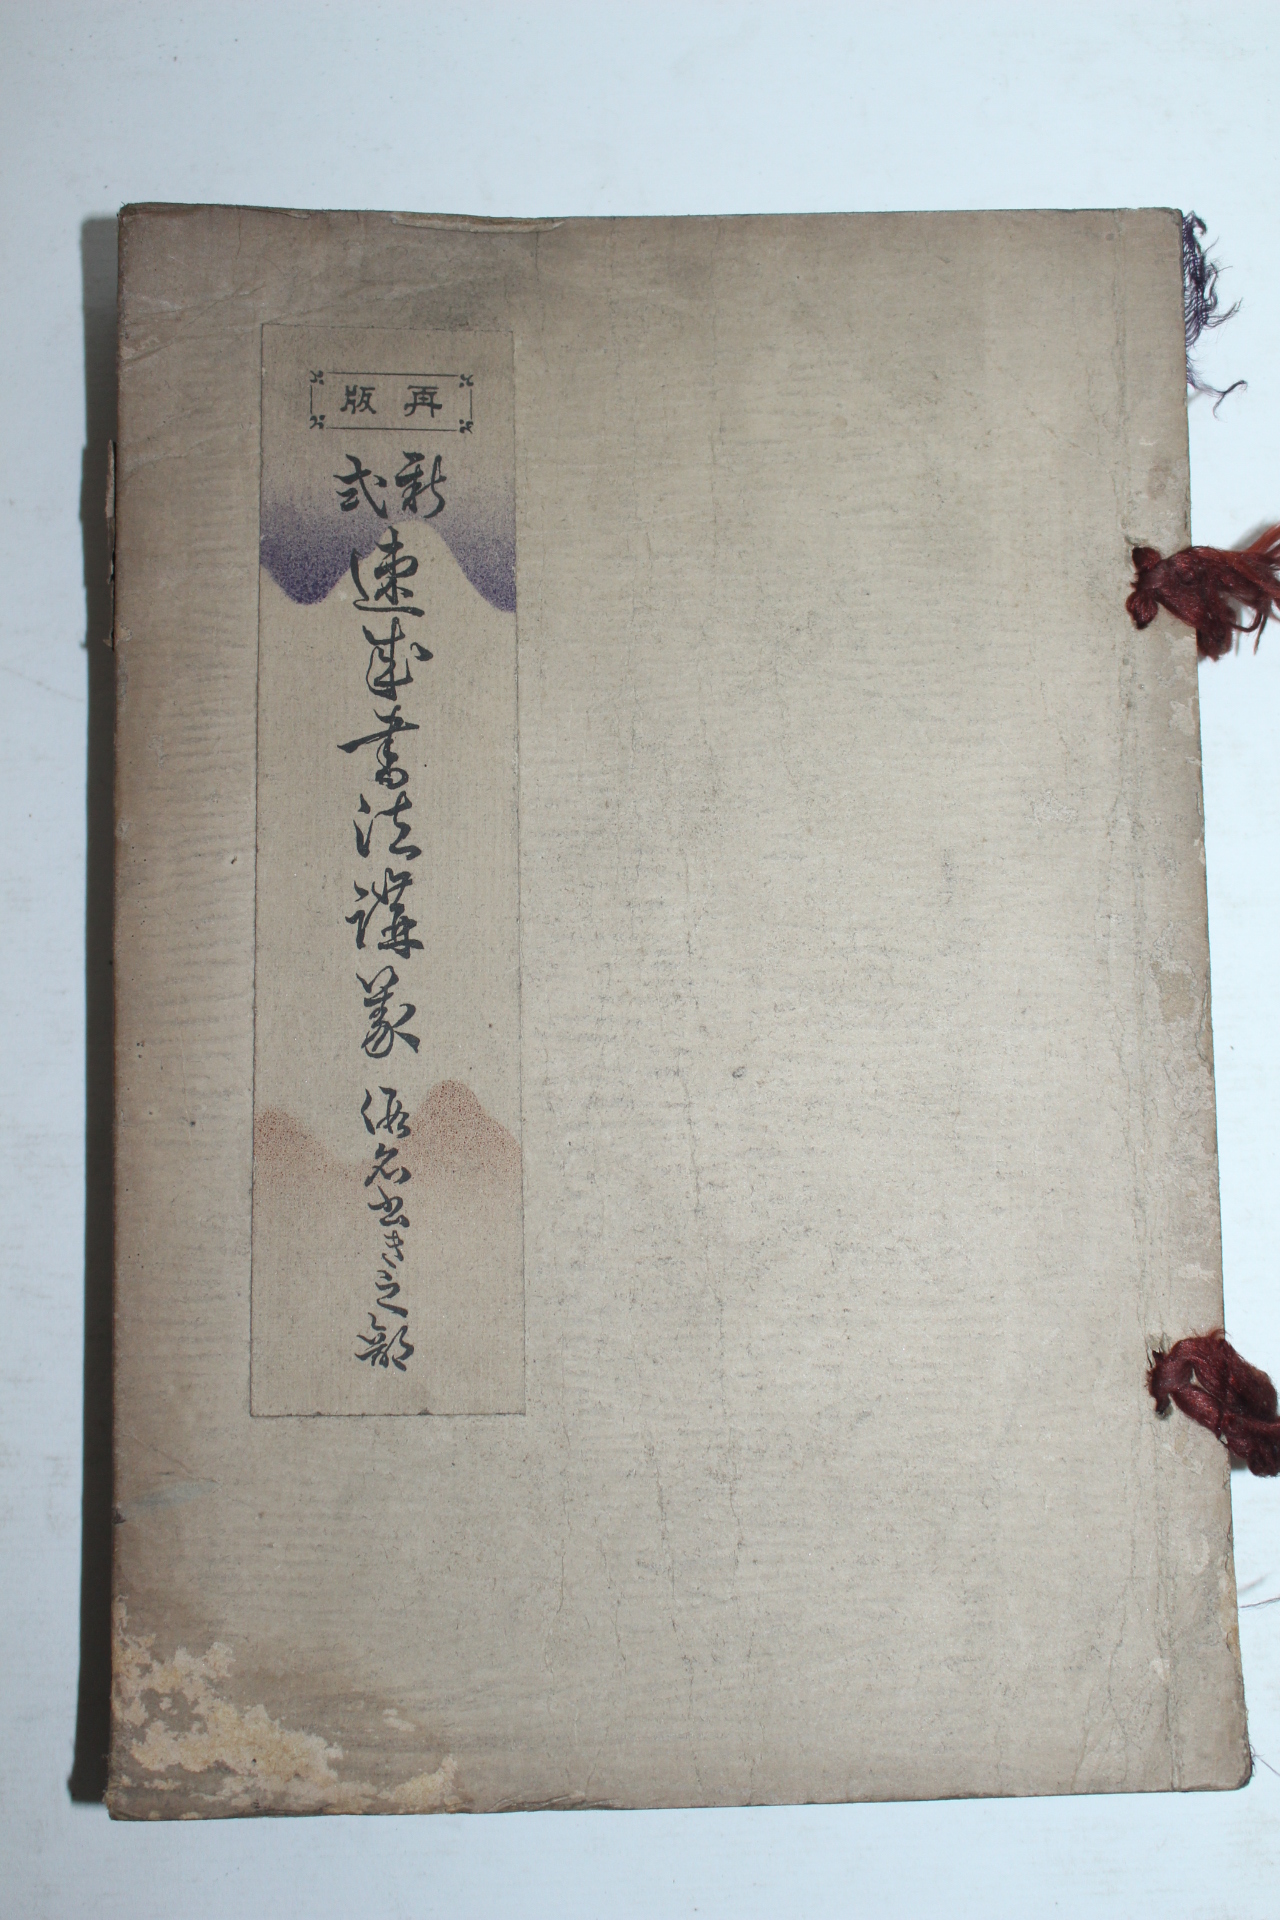 再版
新式
速成書法講義 假名書き之部